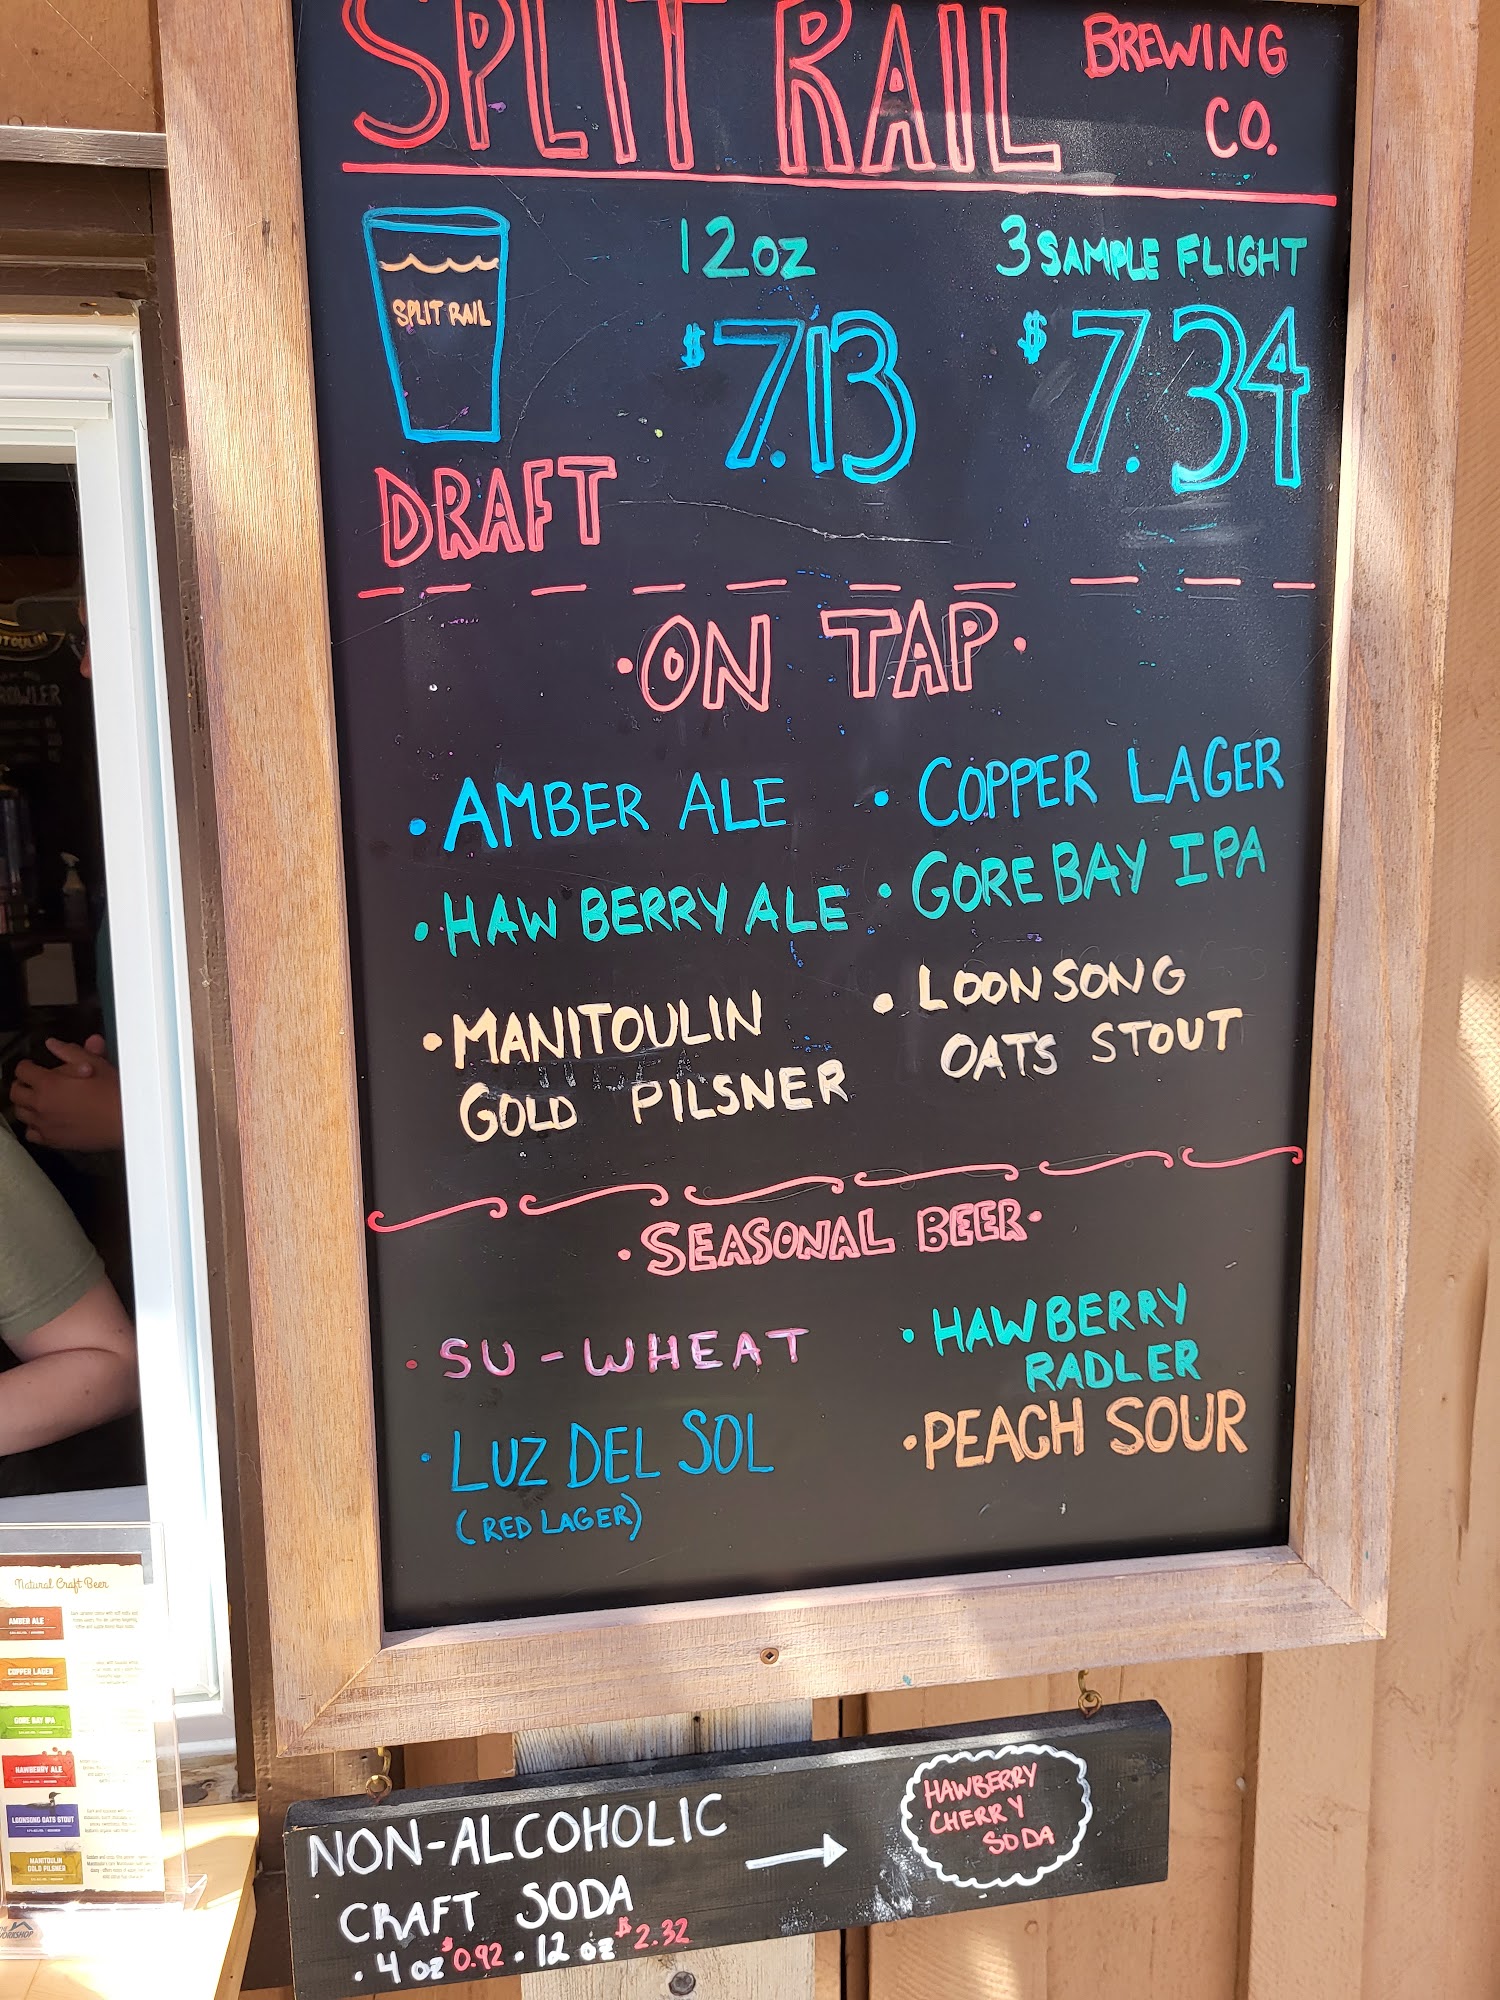 SPLIT RAIL BREWING
CO.
12 oz
3 SAMPLE FLIGHT
SPLIT RAIL
$7.13
$7.34
DRAFT
·ON TAP·
• AMBER ALE
• COPPER LAGER
• HAWBERRY ALE
• GORE BAY IPA
• MANITOULIN
GOLD PILSNER
• LOONSONG
OATS STOUT
·SEASONAL BEER·
• SU-WHEAT
• HAWBERRY
RADLER
• LUZ DEL SOL
(RED LAGER)
• PEACH SOUR
NON-ALCOHOLIC
CRAFT SODA
• 4 oz $0.92 • 12 oz $2.32
HAWBERRY
CHERRY
SODA
Natural Craft Beer
AMBER ALE
COPPER LAGER
GORE BAY IPA
HAWBERRY ALE
LOONSONG OATS STOUT
MANITOULIN
GOLD PILSNER